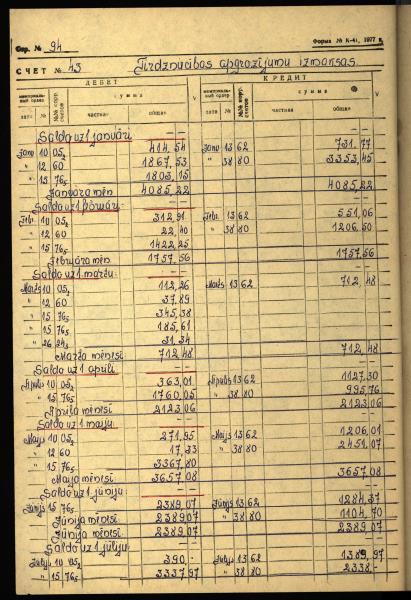 Стр. № 94
Форма № К-41, 1977 г.
СЧЕТ № 43 Tirdzniecības apgrozījumu izmaksas.
ДЕБЕТ КРЕДИТ
дата № сумма частная общая дата № сумма частная общая
Saldo uz 1 janvāri — — — —
Janv. 10 05₂ 414,54 Janv. 13 62 731,77
" 12 60 1867,53 " 38 80 3353,45
" 15 76₅ 1803,15
Janvāra mēn 4085,22 4085,22
Saldo uz 1 februāri — — — —
Febr. 10 05₂ 312,91 Febr. 13 62 551,06
" 12 60 22,40 " 38 80 1206,50
" 15 76₅ 1422,25
Februāra mēn. 1757,56 1757,56
Saldo uz 1 martu — —
Marts 10 05₂ 112,26 Marts 13 62 712,48
" 12 60 37,89
" 15 76₅ 345,38
" " " 185,61
" 26 24₃ 31,34
Marta mēnesī 712,48 712,48
Saldo uz 1 aprīli — — — —
Aprīlis 10 05₂ 363,01 Aprīlis 13 62 1127,30
" 15 76₅ 1760,05 " 38 80 995,76
Aprīļa mēnesī 2123,06 2123,06
Saldo uz 1 maiju — — — —
Maijs 10 05₂ 271,95 Maijs 13 62 1206,01
" 12 60 17,33 " 38 80 2451,07
" 15 76₅ 3367,80
Maija mēnesī 3657,08 3657,08
Saldo uz 1 jūniju — —
Jūnijs 15 76₅ 2389,07 Jūnijs 13 62 1284,37
Jūnija mēnesī 2389,07 " 38 80 1104,70
Jūnija mēnesī 2389,07 2389,07
Saldo uz 1 jūliju — — — —
Jūlijs 10 05₂ 390,- Jūlijs 13 62 1389,97
" 15 76₅ 3337,97 " 38 80 2338,-